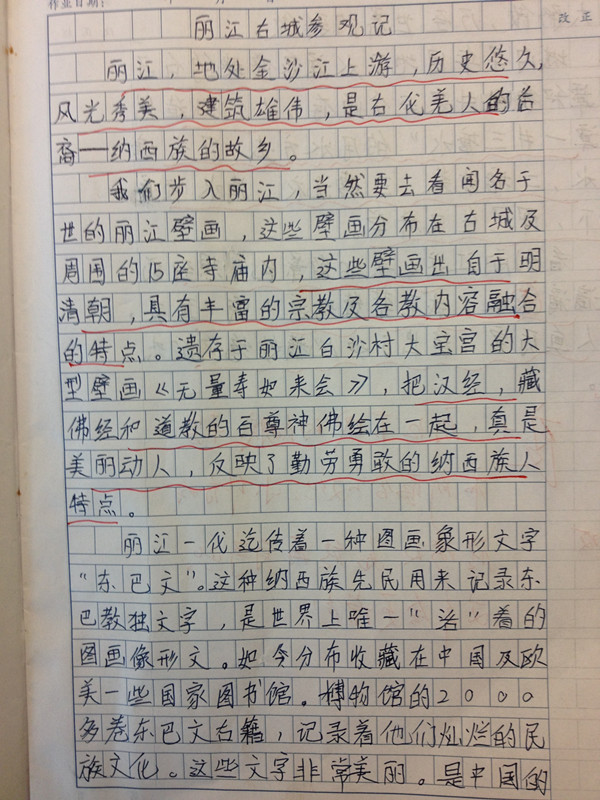 作业日期:
改正
丽江古城参观记
丽江，地处金沙江上游，历史悠久，
风光秀美，建筑雄伟，是古代羌人的后
裔——纳西族的故乡。
我们步入丽江，当然要去看闻名于
世的丽江壁画，这些壁画分布在古城及
周围的15座寺庙内，这些壁画出自于明
清朝，具有丰富的宗教及各教内容融合
的特点。遗存于丽江白沙村大宝宫的大
型壁画《无量寿如来会》，把汉经，藏
佛经和道教的百尊神佛绘在一起，真是
美丽动人，反映了勤劳勇敢的纳西族人
特点。
丽江一代迄传着一种图画象形文字
“东巴文”。这种纳西族先民用来记录东
巴教独文字，是世界上唯一“活”着的
图画像形文。如今分布收藏在中国及欧
美一些国家图书馆。博物馆的2000
多卷东巴文古籍，记录着他们灿烂的民
族文化。这些文字非常美丽。是中国的